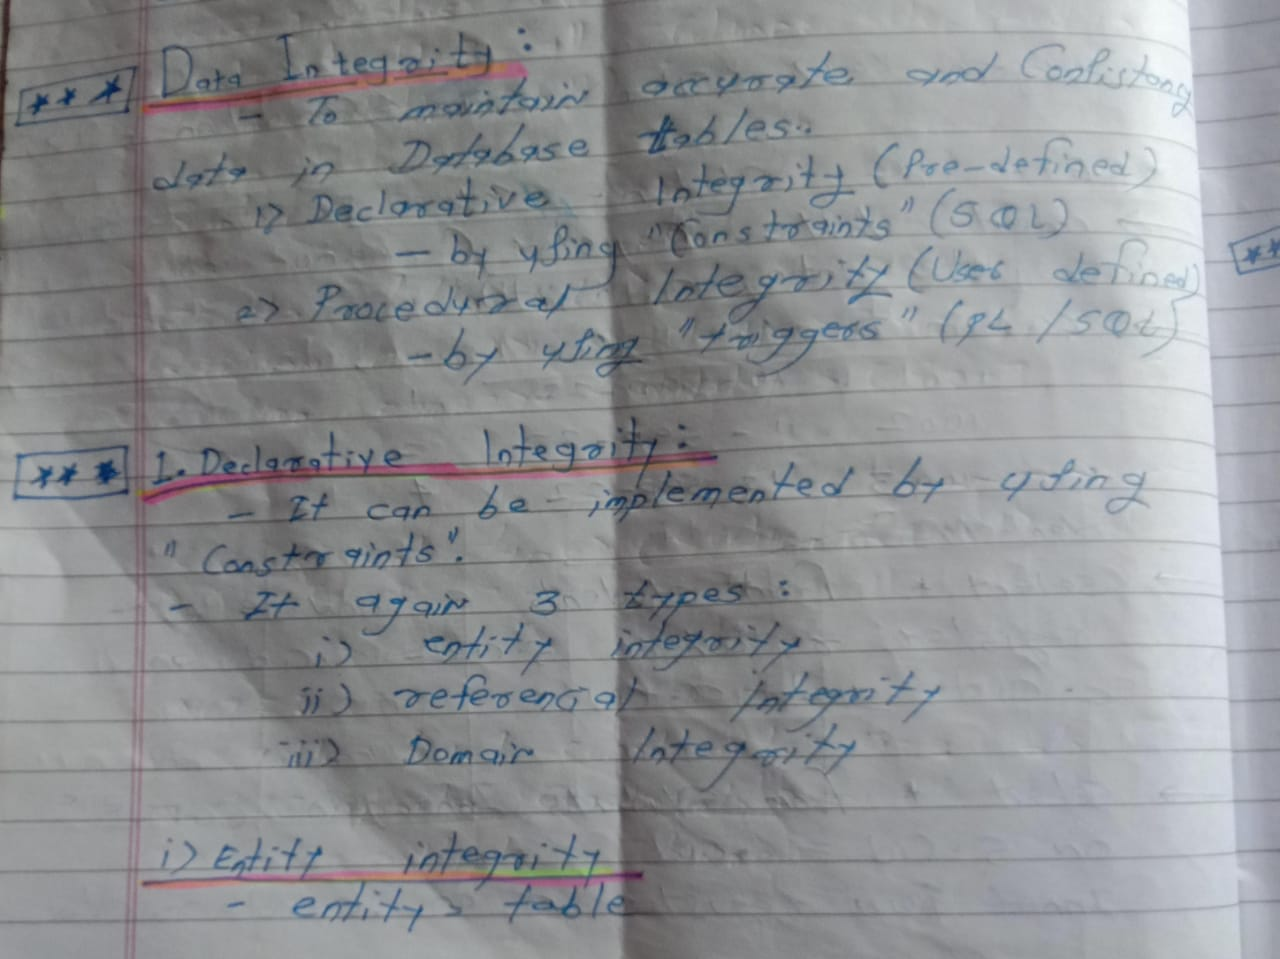 *** Data Integrity :
- To maintain accurate and Consistancy
data in Database tables..
1) Declarative Integrity (Pre-defined)
- by using "Constraints" (SQL)
2) Procedural Integrity (User defined)
- by using "triggers" (PL/SQL)
*** 1. Declarative Integrity :
- It can be implemented by using
"Constraints".
- It again 3 types :
i) entity integrity
ii) referencial Integrity
iii) Domain Integrity
i) Entity integrity
- entity > table
**